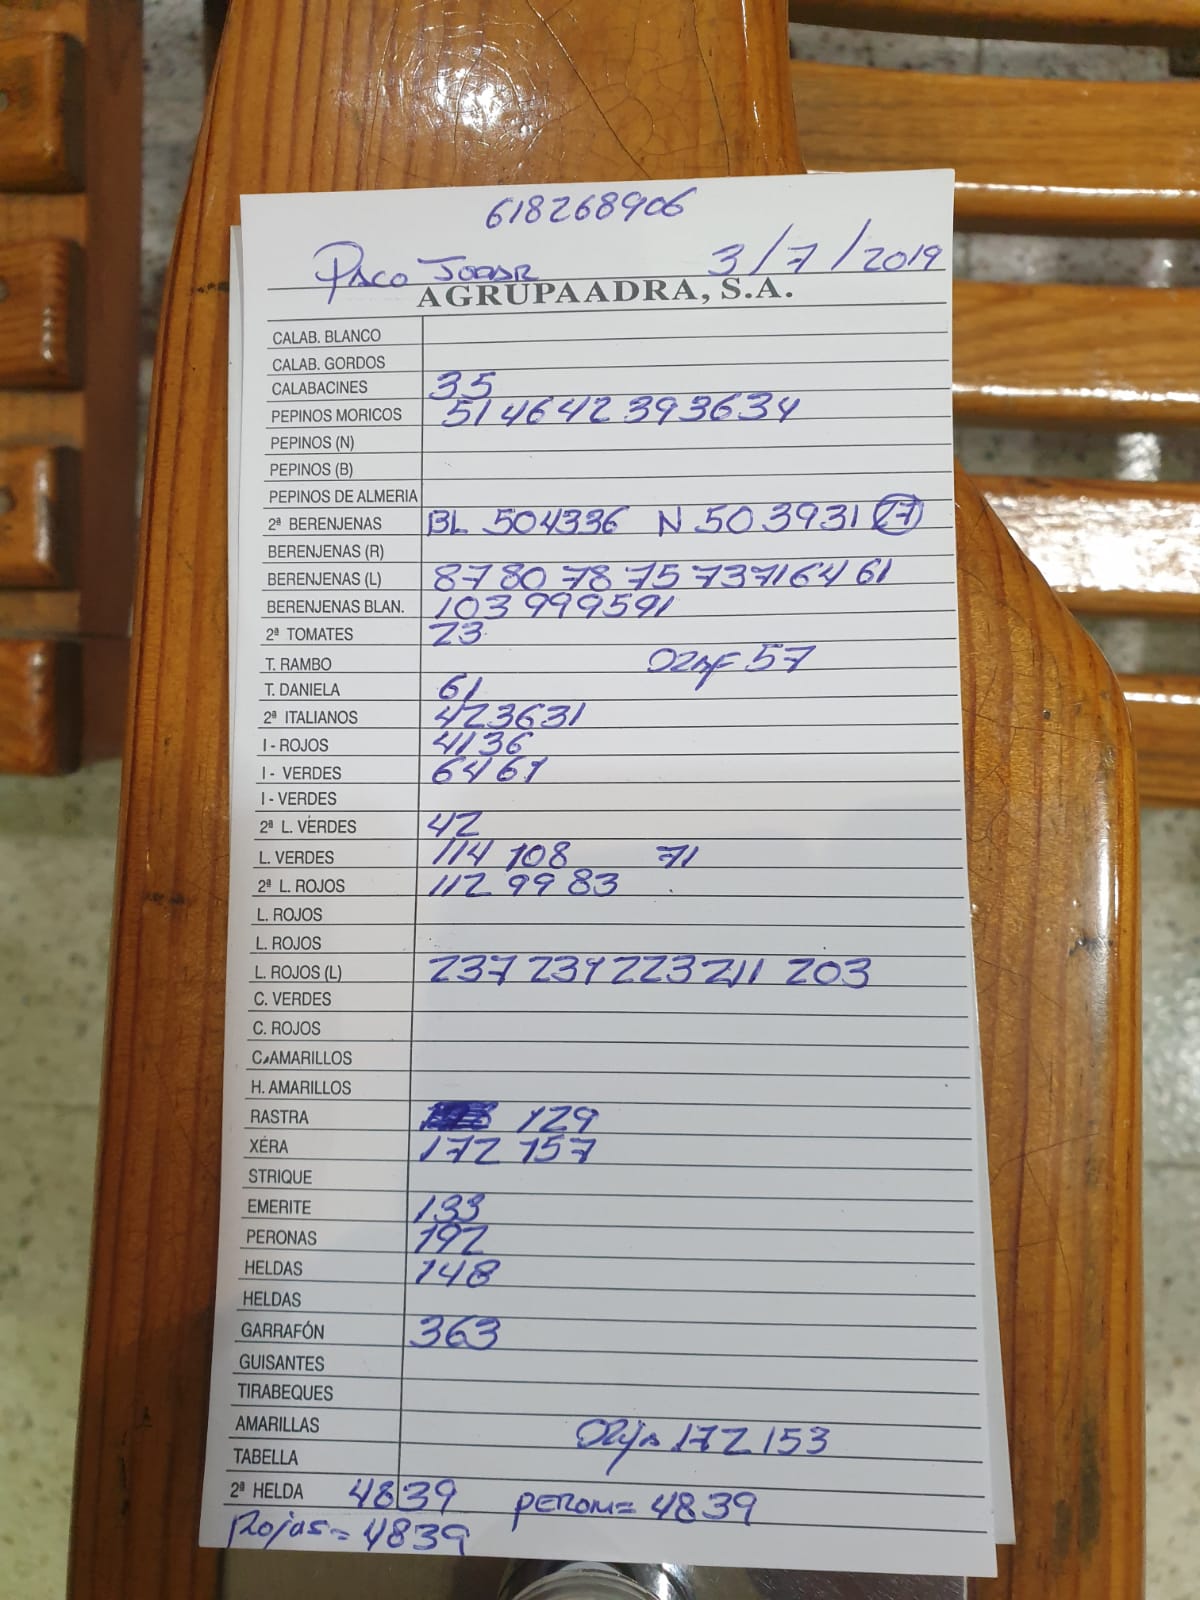 618268906
PACO JODAR 3/7/2019
AGRUPAADRA, S.A.
CALAB. BLANCO
CALAB. GORDOS
CALABACINES 35
PEPINOS MORICOS 51 46 42 39 36 34
PEPINOS (N)
PEPINOS (B)
PEPINOS DE ALMERIA
2ª BERENJENAS BL 50 43 36 N 50 39 31 (27)
BERENJENAS (R)
BERENJENAS (L) 87 80 78 75 73 71 64 61
BERENJENAS BLAN. 103 99 95 91
2ª TOMATES 23
T. RAMBO 57
T. DANIELA 61
2ª ITALIANOS 42 36 31
I - ROJOS 41 36
I - VERDES 64 61
I - VERDES
2ª L. VERDES 42
L. VERDES 114 108 71
2ª L. ROJOS 112 99 83
L. ROJOS
L. ROJOS
L. ROJOS (L) 237 231 223 211 203
C. VERDES
C. ROJOS
C. AMARILLOS
H. AMARILLOS
RASTRA 129
XÉRA 172 157
STRIQUE
EMERITE 133
PERONAS 192
HELDAS 148
HELDAS
GARRAFÓN 363
GUISANTES
TIRABEQUES
AMARILLAS 172 153
TABELLA
2ª HELDA 48 39 PERONA= 48 39
Rojas= 48 39